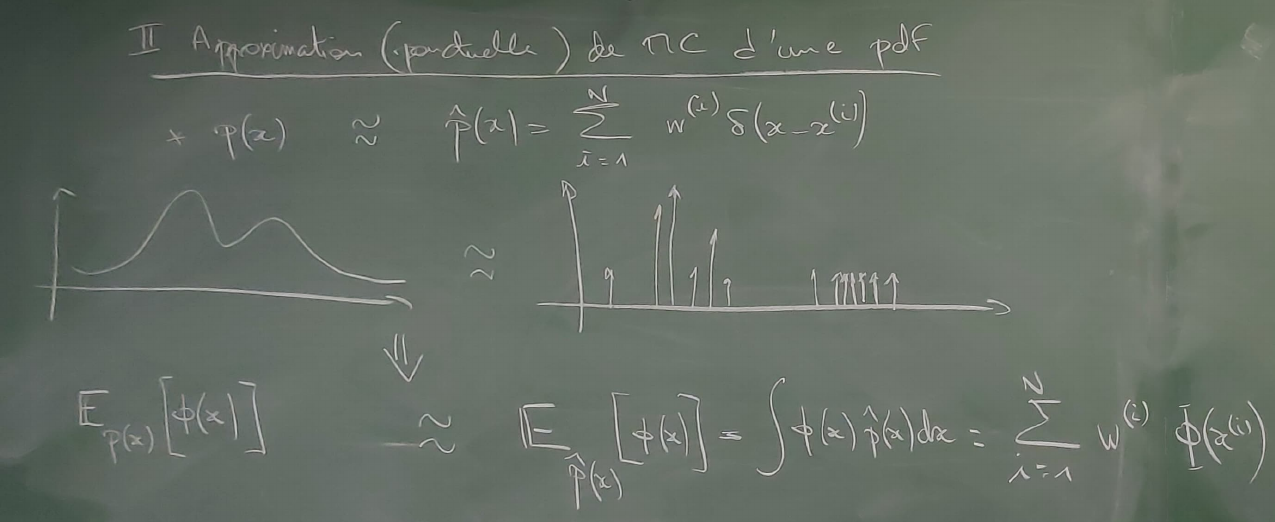 II Approximation (ponctuelle) de MC d'une pdf
* p(x) ≈ p̂(x) = ∑_{i=1}^{N} w^{(i)} δ(x-x^{(i)})
≈
⇓
E_{p(x)}[ϕ(x)] ≈ E_{p̂(x)}[ϕ(x)] = ∫ϕ(x)p̂(x)dx = ∑_{i=1}^{N} w^{(i)} Φ(x^{(i)})